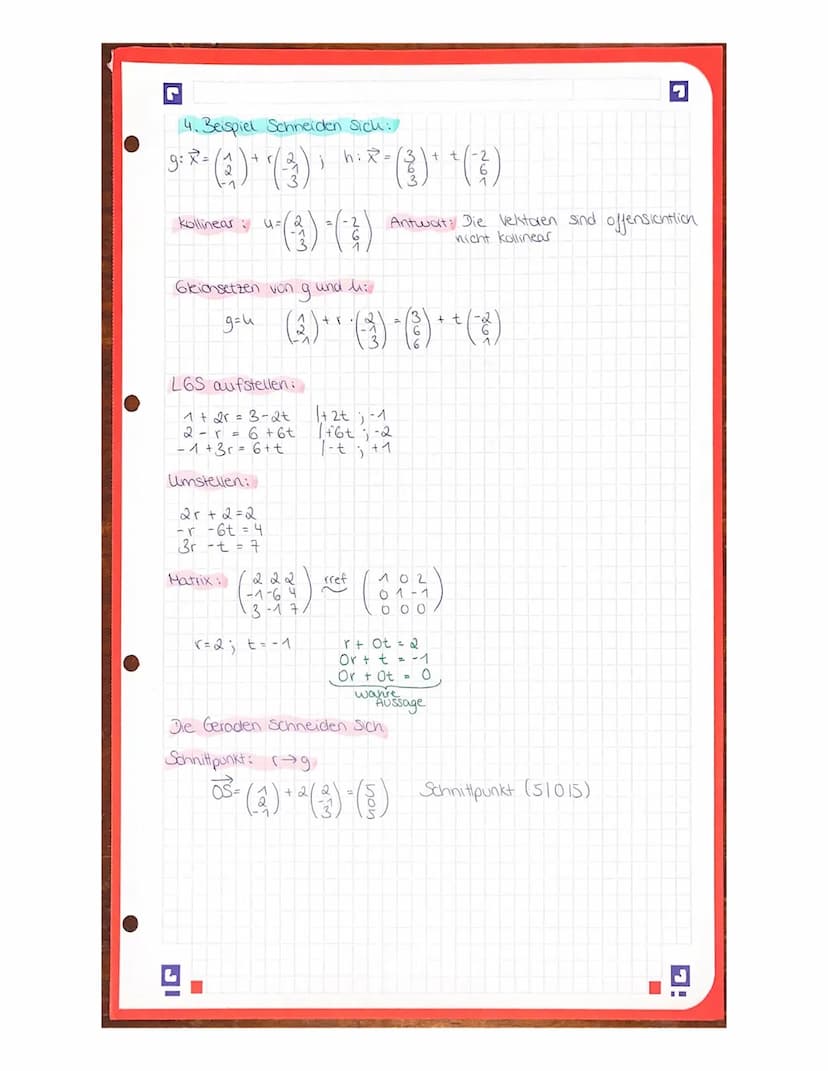 4. Beispiel Schneiden sich:
g: x⃗ = (1 2 -1) + r (2 -1 3) ; h: x⃗ = (3 6 3) + t (-2 6 1)
Kollinear: u = (2 -1 3) = (-2 6 1) Antwort: Die Vektoren sind offensichtlich
nicht kollinear
Gleichsetzen von g und h:
g=h (1 2 -1) + r · (2 -1 3) = (3 6 6) + t (-2 6 1)
LGS aufstellen:
1 + 2r = 3 - 2t |+2t ; -1
2 - r = 6 + 6t |+6t ; -2
-1 + 3r = 6 + t |-t ; +1
Umstellen:
2r + 2 = 2
-r - 6t = 4
3r - t = 7
Matrix: (2 2 2 / -1 -6 4 / 3 -1 7) rref ~ (1 0 2 / 0 1 -1 / 0 0 0)
r=2 ; t=-1
r + 0t = 2
0r + t = -1
0r + 0t = 0
wahre
Aussage
Die Geraden schneiden sich
Schnittpunkt: r → g
OS⃗ = (1 2 -1) + 2 (2 -1 3) = (5 0 5) Schnittpunkt (5|0|5)